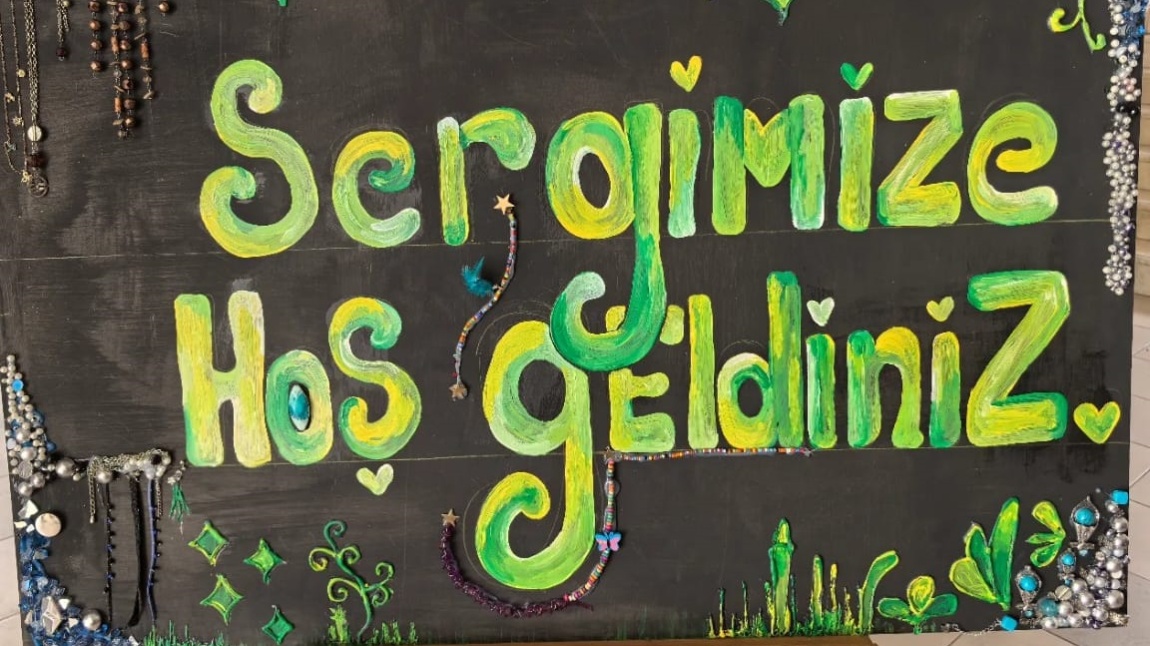 Sergimize
Hoş gEldiniZ.